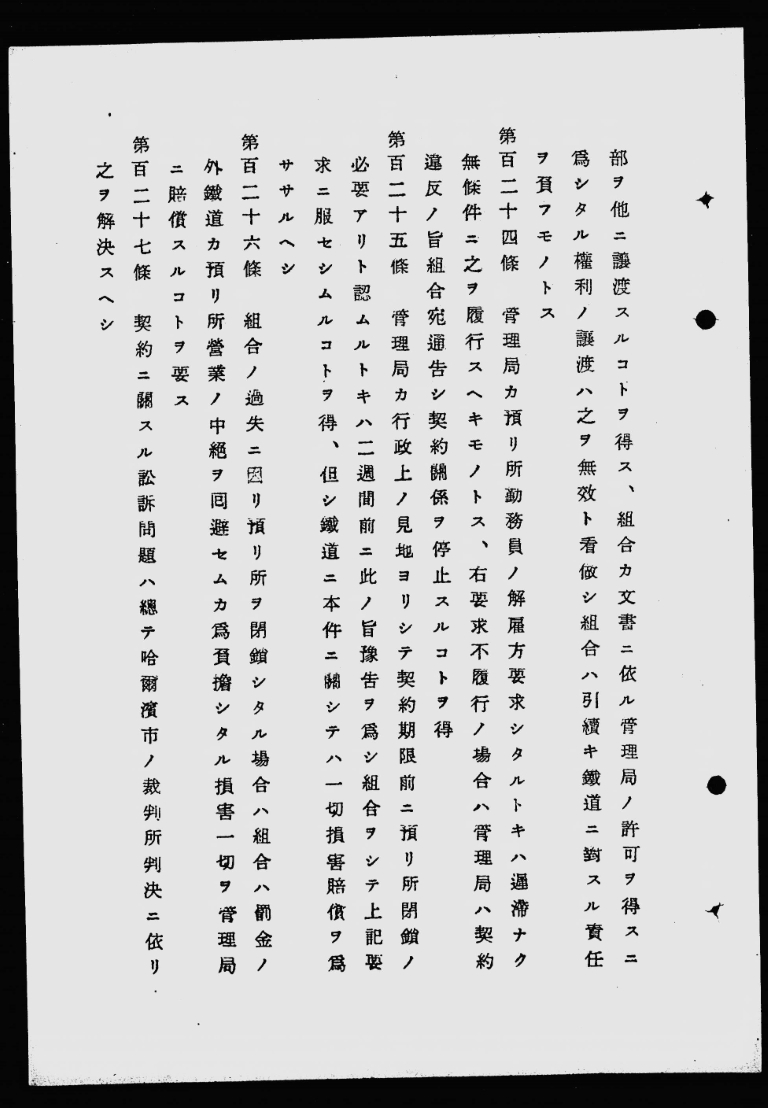 部ヲ他ニ讓渡スルコトヲ得ス、組合カ文書ニ依ル管理局ノ許可ヲ得スニ
爲シタル權利ノ讓渡ハ之ヲ無效ト看做シ組合ハ引續キ鐵道ニ對スル責任
ヲ負フモノトス
第百二十四條　管理局カ預リ所勤務員ノ解雇方要求シタルトキハ遲滯ナク
無條件ニ之ヲ履行スヘキモノトス、右要求不履行ノ場合ハ管理局ハ契約
違反ノ旨組合宛通告シ契約關係ヲ停止スルコトヲ得
第百二十五條　管理局カ行政上ノ見地ヨリシテ契約期限前ニ預リ所閉鎖ノ
必要アリト認ムルトキハ二週間前ニ此ノ旨豫告ヲ爲シ組合ヲシテ上記要
求ニ服セシムルコトヲ得、但シ鐵道ニ本件ニ關シテハ一切損害賠償ヲ爲
ササルヘシ
第百二十六條　組合ノ過失ニ因リ預リ所ヲ閉鎖シタル場合ハ組合ハ罰金ノ
外鐵道カ預リ所營業ノ中絕ヲ囘避セムカ爲負擔シタル損害一切ヲ管理局
ニ賠償スルコトヲ要ス
第百二十七條　契約ニ關スル訟訴問題ハ總テ哈爾濱市ノ裁判所判決ニ依リ
之ヲ解決スヘシ